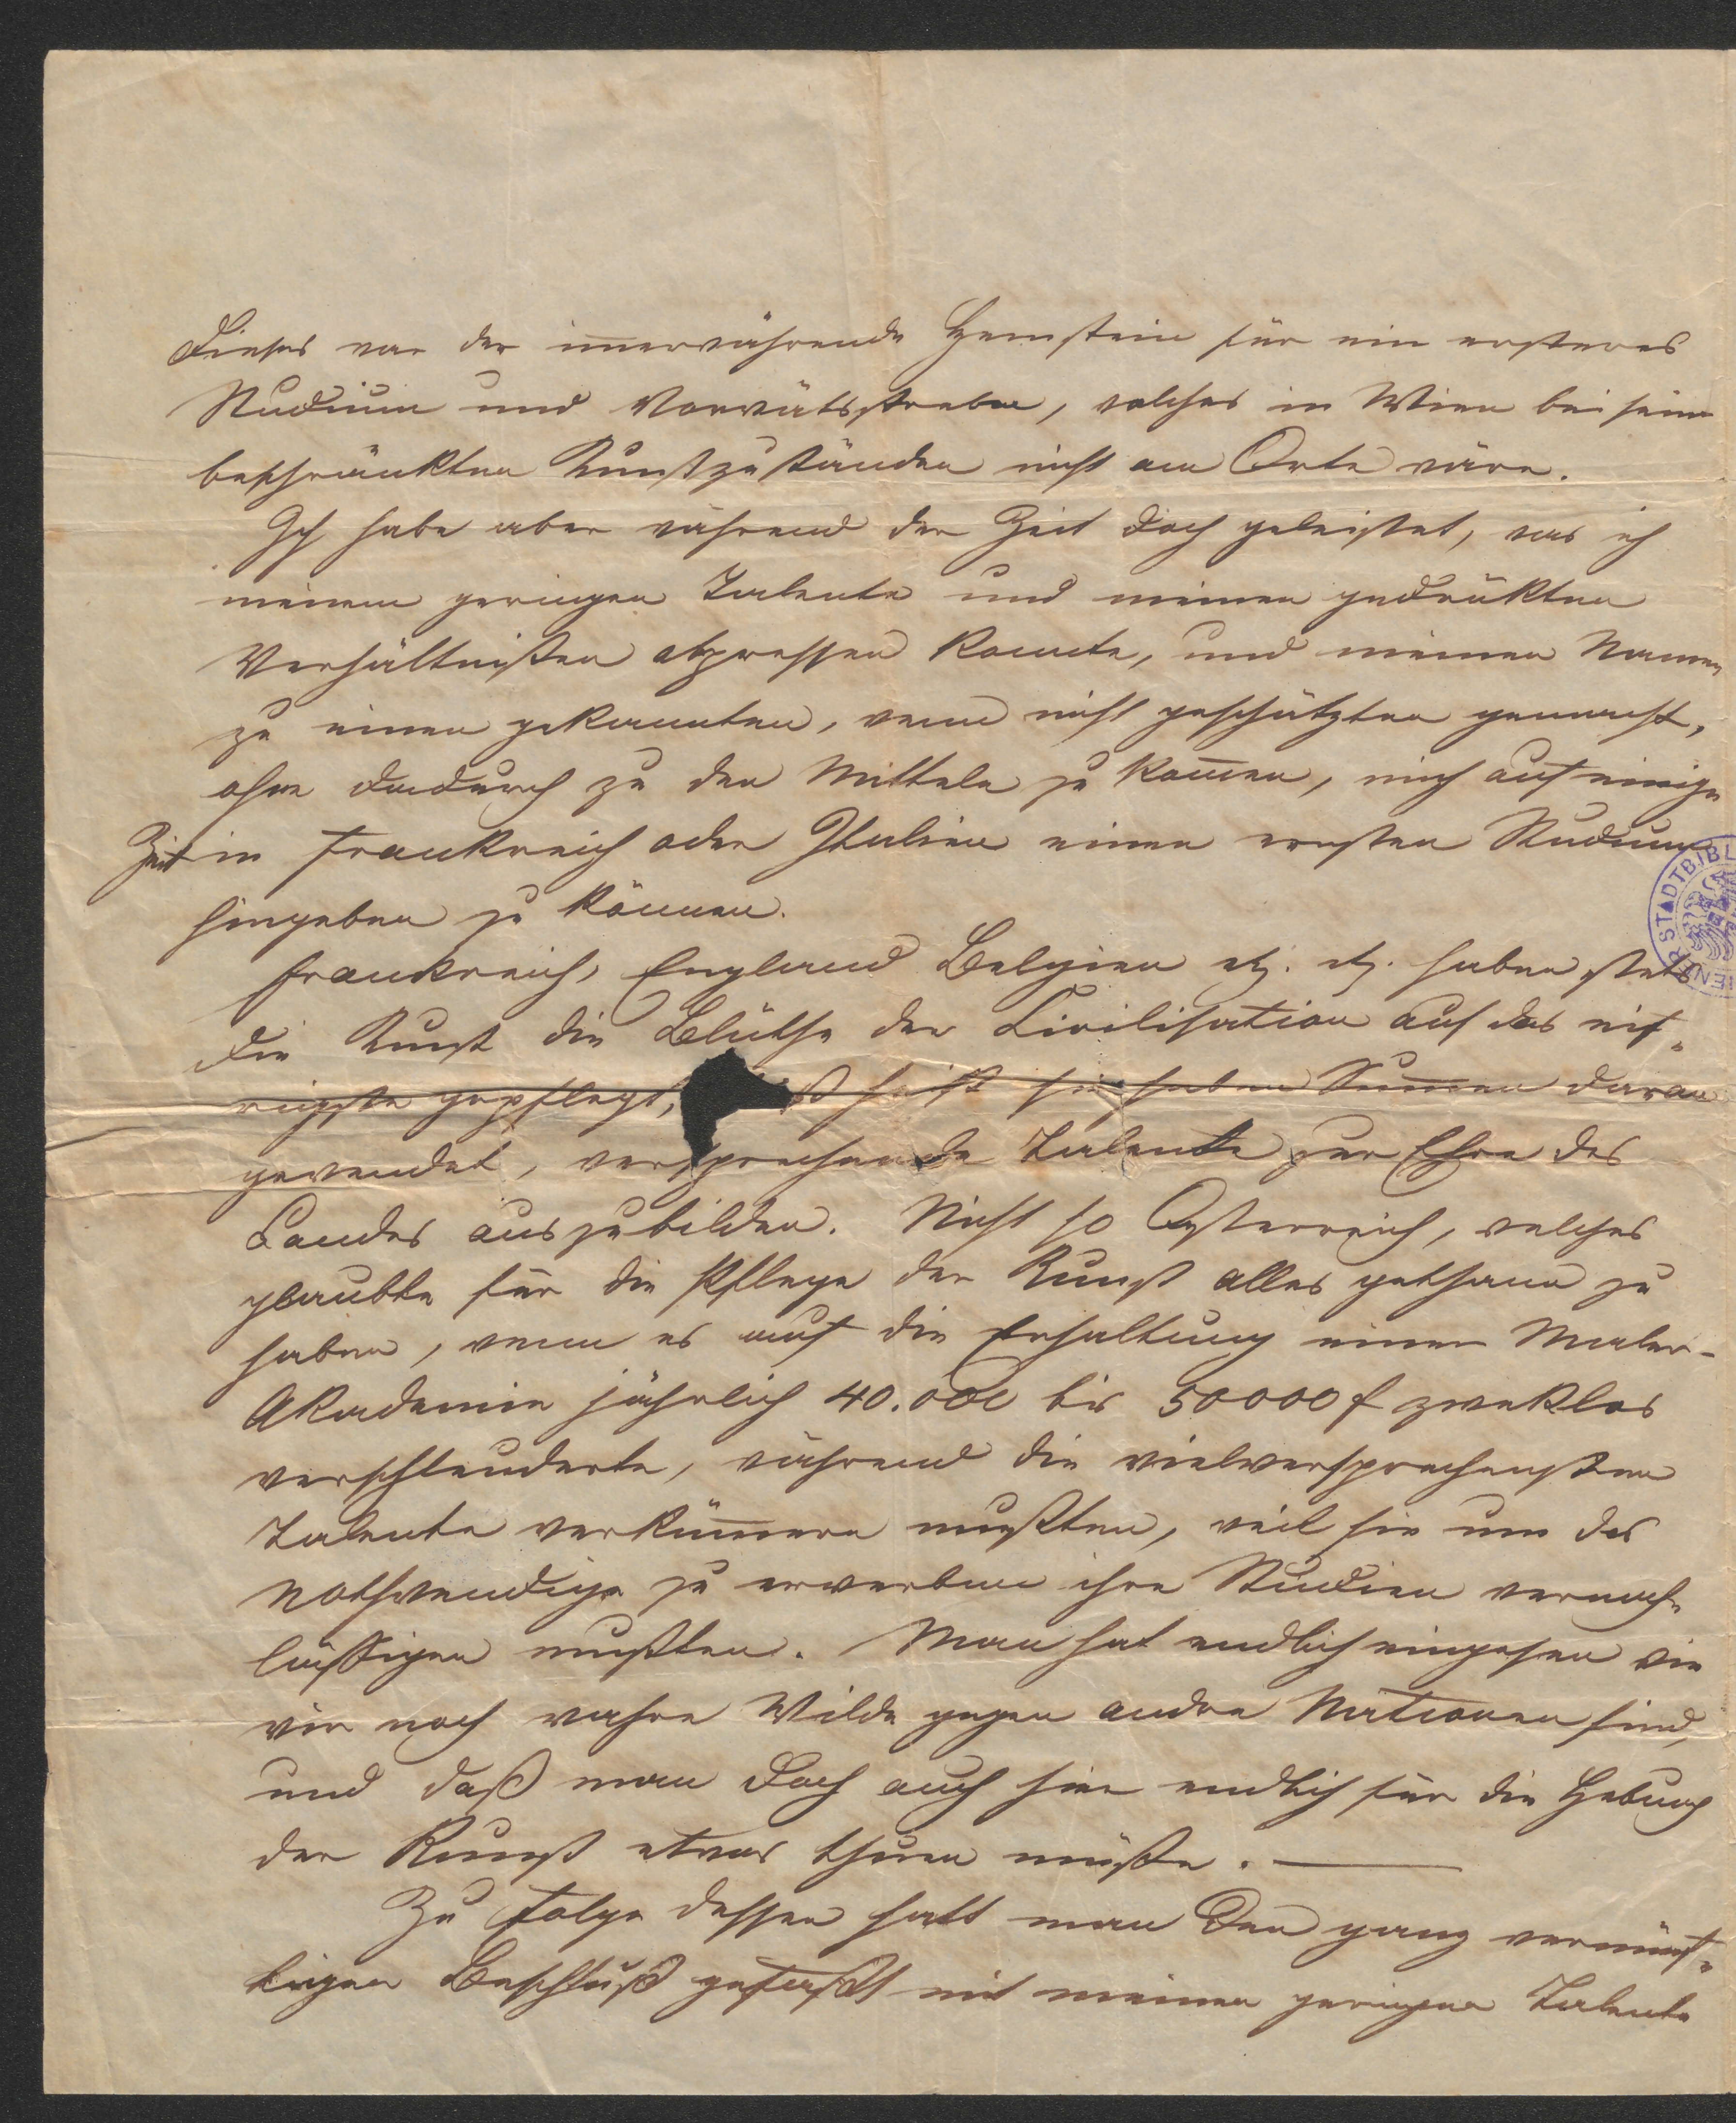 Dieses war der im̅erwährende Hemstein für ein ersteres
Studium und Vorwätsstreben, welches in Wien bei seine
beschränkten Kunstzuständen nicht am Orte wäre.
Ich habe aber während der Zeit doch geleistet, was ich
meinem geringen Talente und meinen gedrükten
Verhältnißen abpressen konnte, und meinen Namen
zu einen gekannten, wenn nicht geschätzten gemacht,
ohne dadurch zu den Mitteln zu kom̅en, mich auf einige
Zeit in Frankreich oder Italien einen ernsten Studium
hingeben zu können.
Frankreich, England Belgien etz. etz. haben stets
die Kunst die Blüthe der Civilisation auf das eif„
rigste gepflegt, heißt sie haben Sum̅en daran
gewendet, versprechende Talente zur Ehre des
Landes auszubilden. Nicht so Östereich, welches
glaubte für die Pflege der Kunst alles gethann zu
haben, wenn es auf die Erhaltung einer Maler-
Akademie jährlich 40.000 bis 50000 f zweklos
verschleuderte, während die vielversprechensten
Talente verküm̅ern mußten, weil sie um das
Nothwendige zu erwerben ihre Studien vernach„
läßigen mußten. Man hat endlich eingesehen wie
wir noch wahre Wilde gegen andre Nationen sind,
und daß man doch auch hier endlich für die Hebung
der Kunst etwas thuen müße. —
Zu Folge dessen hatt man den ganz vernünf„
tigen Beschluß gefaßt mit meinen geringen Talente
STADTBIBL
WIENER